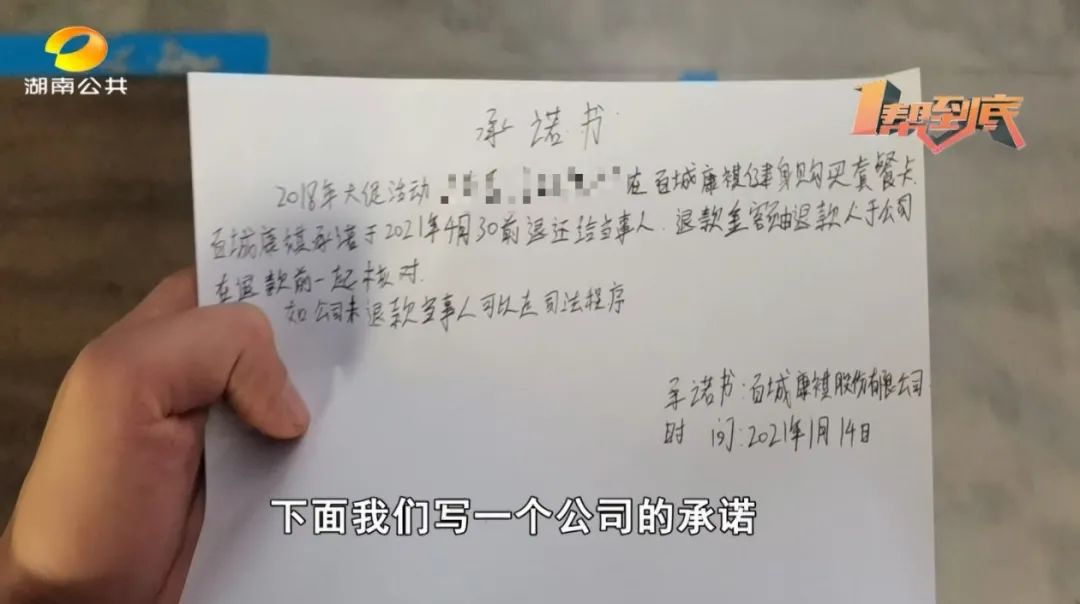 湖南公共
1帮到底
承诺书
2018年大促活动 在百城康祺健身购买套餐卡
百城康祺承诺于2021年4月30前退还给当事人.退款金额由退款人于公司
在退款前一起核对.
如公司未退款当事人可以走司法程序
承诺书:百城康祺股份有限公司
时 间:2021年1月14日
下面我们写一个公司的承诺